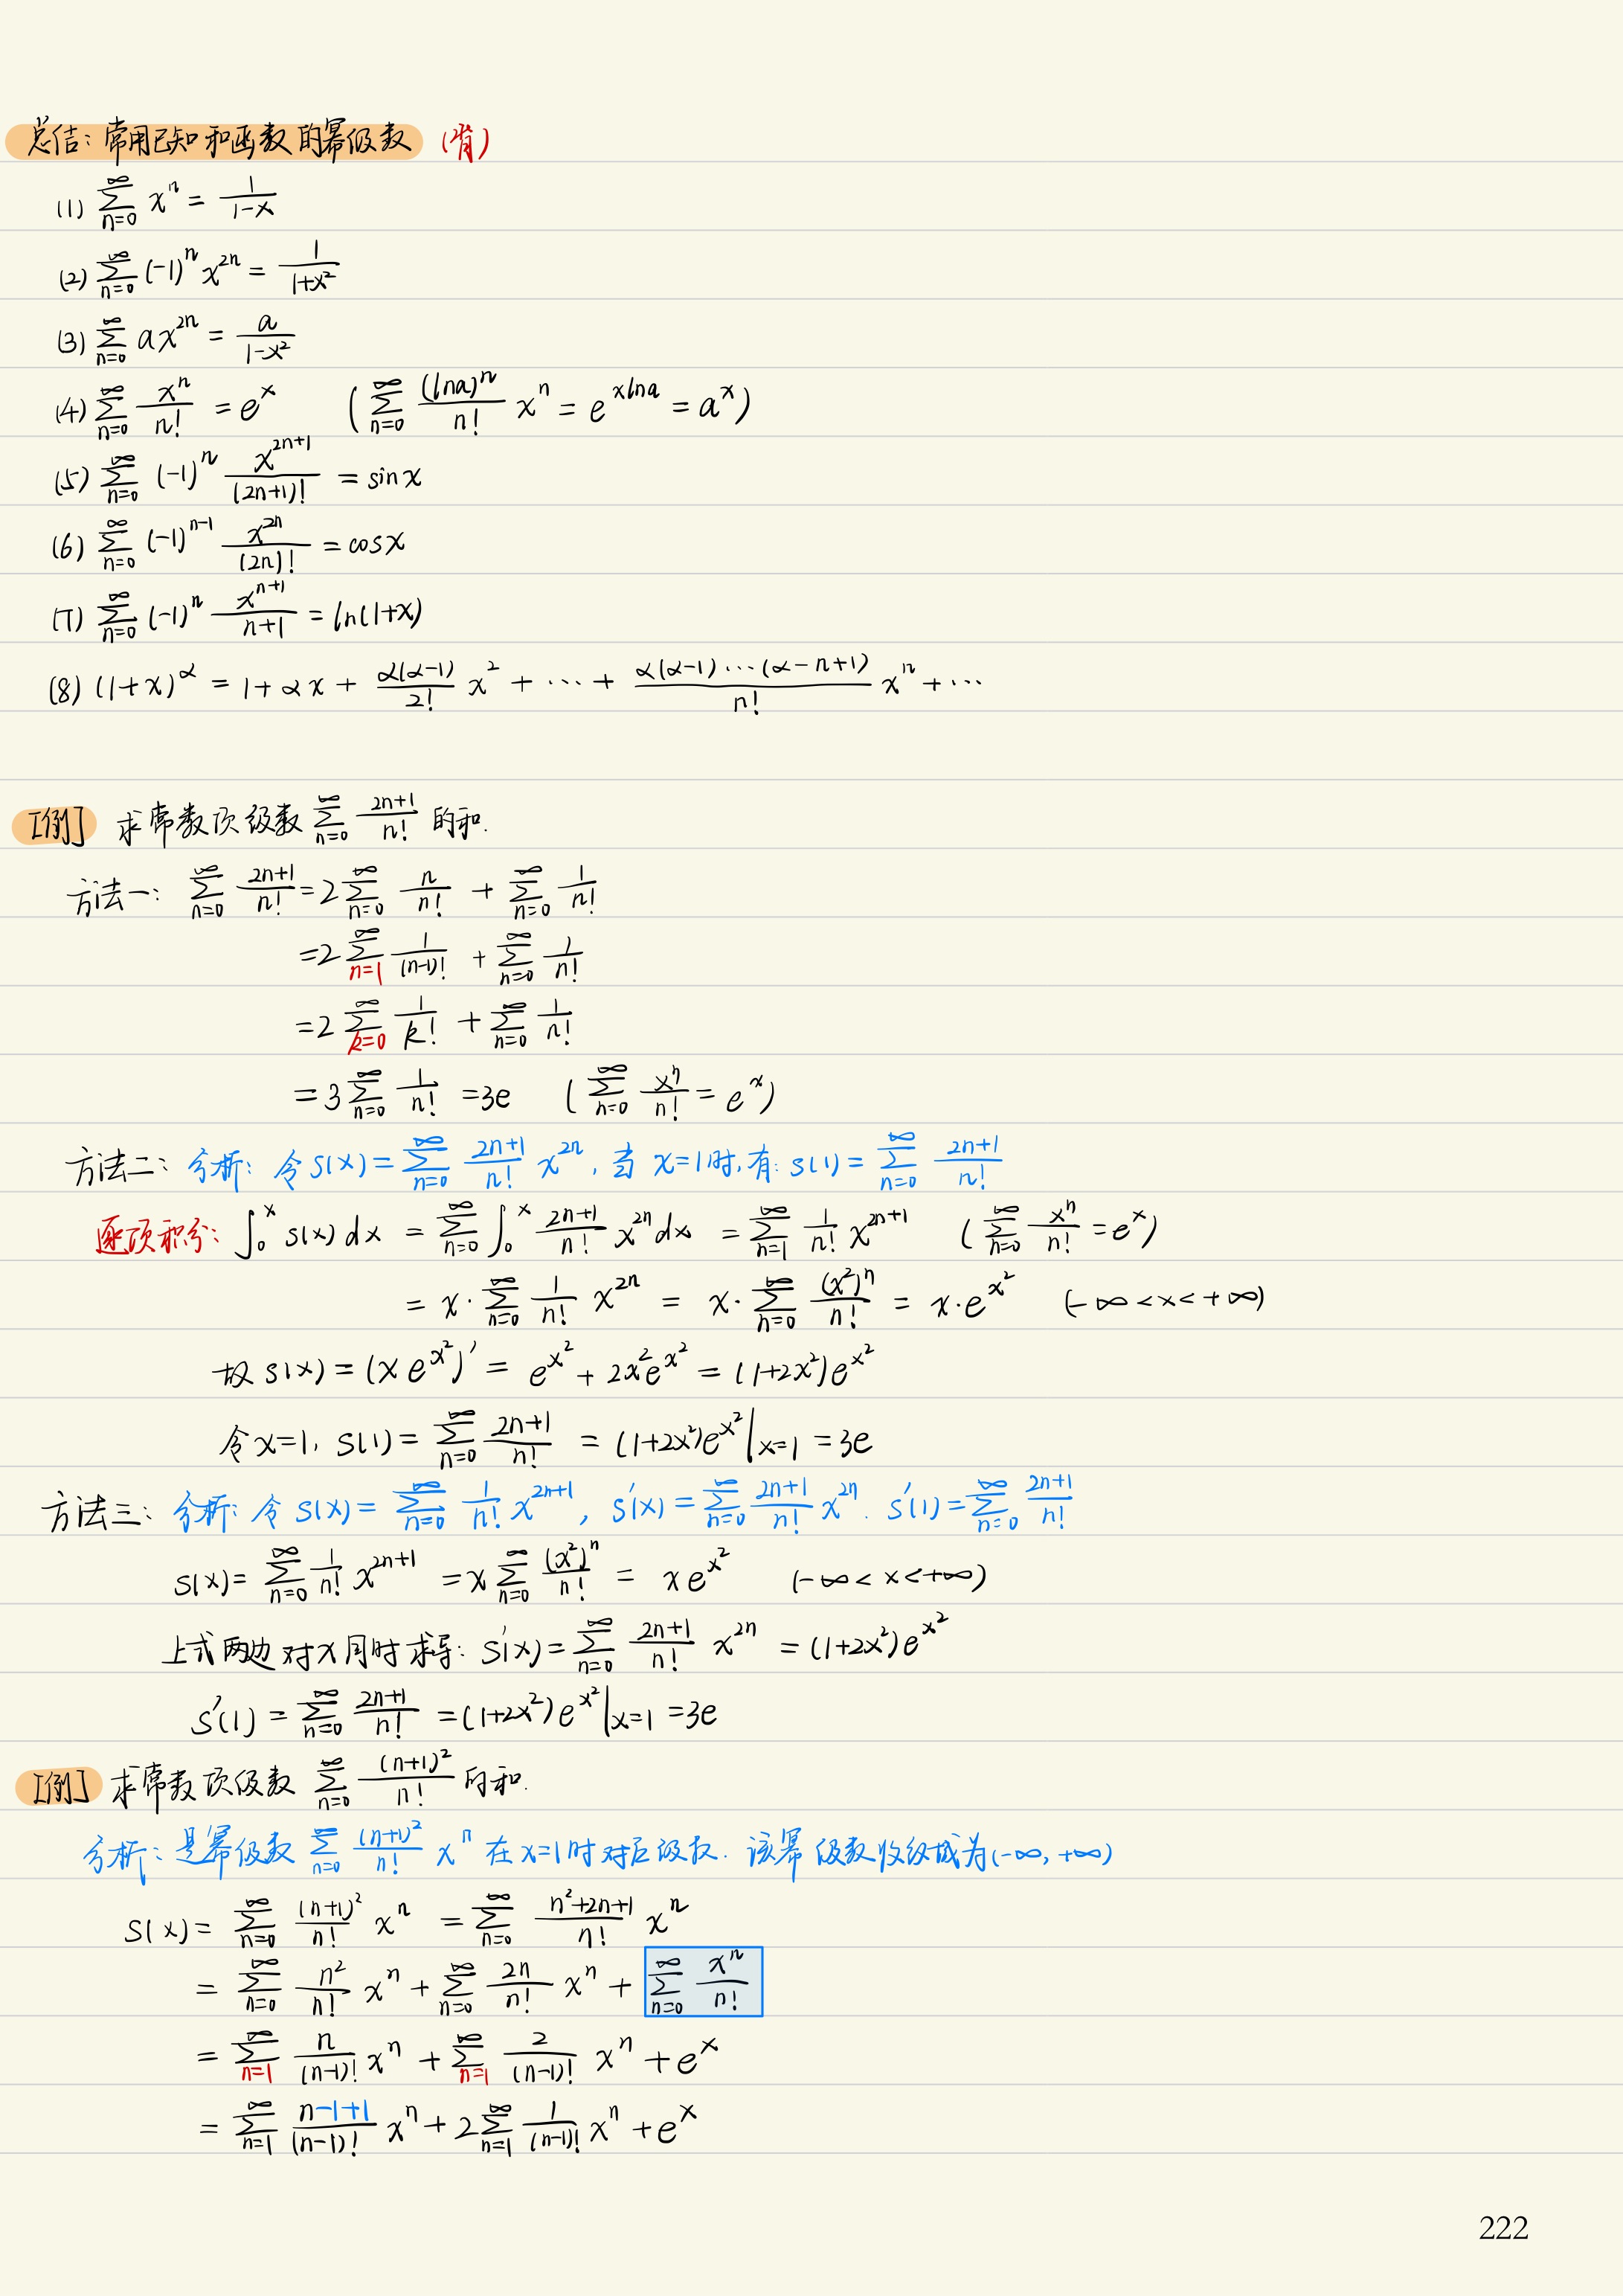 总结：常用已知和函数的幂级数 (背)
(1) $\sum_{n=0}^{\infty} x^n = \frac{1}{1-x}$
(2) $\sum_{n=0}^{\infty} (-1)^n x^{2n} = \frac{1}{1+x^2}$
(3) $\sum_{n=0}^{\infty} a x^{2n} = \frac{a}{1-x^2}$
(4) $\sum_{n=0}^{\infty} \frac{x^n}{n!} = e^x$ ($\sum_{n=0}^{\infty} \frac{(\ln a)^n}{n!} x^n = e^{x\ln a} = a^x$)
(5) $\sum_{n=0}^{\infty} (-1)^n \frac{x^{2n+1}}{(2n+1)!} = \sin x$
(6) $\sum_{n=0}^{\infty} (-1)^{n-1} \frac{x^{2n}}{(2n)!} = \cos x$
(7) $\sum_{n=0}^{\infty} (-1)^n \frac{x^{n+1}}{n+1} = \ln(1+x)$
(8) $(1+x)^\alpha = 1+\alpha x + \frac{\alpha(\alpha-1)}{2!} x^2 + \cdots + \frac{\alpha(\alpha-1)\cdots(\alpha-n+1)}{n!} x^n + \cdots$
[例] 求常数项级数 $\sum_{n=0}^{\infty} \frac{2n+1}{n!}$ 的和.
方法一： $\sum_{n=0}^{\infty} \frac{2n+1}{n!} = 2\sum_{n=0}^{\infty} \frac{n}{n!} + \sum_{n=0}^{\infty} \frac{1}{n!}$
$= 2\sum_{n=1}^{\infty} \frac{1}{(n-1)!} + \sum_{n=0}^{\infty} \frac{1}{n!}$
$= 2\sum_{k=0}^{\infty} \frac{1}{k!} + \sum_{n=0}^{\infty} \frac{1}{n!}$
$= 3\sum_{n=0}^{\infty} \frac{1}{n!} = 3e$ ($\sum_{n=0}^{\infty} \frac{x^n}{n!} = e^x$)
方法二：分析：令 $s(x) = \sum_{n=0}^{\infty} \frac{2n+1}{n!} x^{2n}$, 当 $x=1$ 时, 有: $s(1) = \sum_{n=0}^{\infty} \frac{2n+1}{n!}$
逐项积分: $\int_0^x s(x)dx = \sum_{n=0}^{\infty} \int_0^x \frac{2n+1}{n!} x^{2n} dx = \sum_{n=1}^{\infty} \frac{1}{n!} x^{2n+1}$ ($\sum_{n=0}^{\infty} \frac{x^n}{n!} = e^x$)
$= x \cdot \sum_{n=0}^{\infty} \frac{1}{n!} x^{2n} = x \cdot \sum_{n=0}^{\infty} \frac{(x^2)^n}{n!} = x \cdot e^{x^2}$ $(-\infty < x < +\infty)$
故 $s(x) = (x e^{x^2})' = e^{x^2} + 2x^2 e^{x^2} = (1+2x^2)e^{x^2}$
令 $x=1$, $s(1) = \sum_{n=0}^{\infty} \frac{2n+1}{n!} = (1+2x^2)e^{x^2}|_{x=1} = 3e$
方法三：分析：令 $s(x) = \sum_{n=0}^{\infty} \frac{1}{n!} x^{2n+1}$, $s'(x) = \sum_{n=0}^{\infty} \frac{2n+1}{n!} x^{2n}$. $s'(1) = \sum_{n=0}^{\infty} \frac{2n+1}{n!}$
$s(x) = \sum_{n=0}^{\infty} \frac{1}{n!} x^{2n+1} = x\sum_{n=0}^{\infty} \frac{(x^2)^n}{n!} = x e^{x^2}$ $(-\infty < x < +\infty)$
上式两边对x同时求导: $s'(x) = \sum_{n=0}^{\infty} \frac{2n+1}{n!} x^{2n} = (1+2x^2)e^{x^2}$
$s'(1) = \sum_{n=0}^{\infty} \frac{2n+1}{n!} = (1+2x^2)e^{x^2}|_{x=1} = 3e$
[例] 求常数项级数 $\sum_{n=0}^{\infty} \frac{(n+1)^2}{n!}$ 的和.
分析：是幂级数 $\sum_{n=0}^{\infty} \frac{(n+1)^2}{n!} x^n$ 在 $x=1$ 时对应级数. 该幂级数收敛域为 $(-\infty, +\infty)$
$s(x) = \sum_{n=0}^{\infty} \frac{(n+1)^2}{n!} x^n = \sum_{n=0}^{\infty} \frac{n^2+2n+1}{n!} x^n$
$= \sum_{n=0}^{\infty} \frac{n^2}{n!} x^n + \sum_{n=0}^{\infty} \frac{2n}{n!} x^n + \sum_{n=0}^{\infty} \frac{x^n}{n!}$
$= \sum_{n=1}^{\infty} \frac{n}{(n-1)!} x^n + \sum_{n=1}^{\infty} \frac{2}{(n-1)!} x^n + e^x$
$= \sum_{n=1}^{\infty} \frac{n-1+1}{(n-1)!} x^n + 2\sum_{n=1}^{\infty} \frac{1}{(n-1)!} x^n + e^x$
222